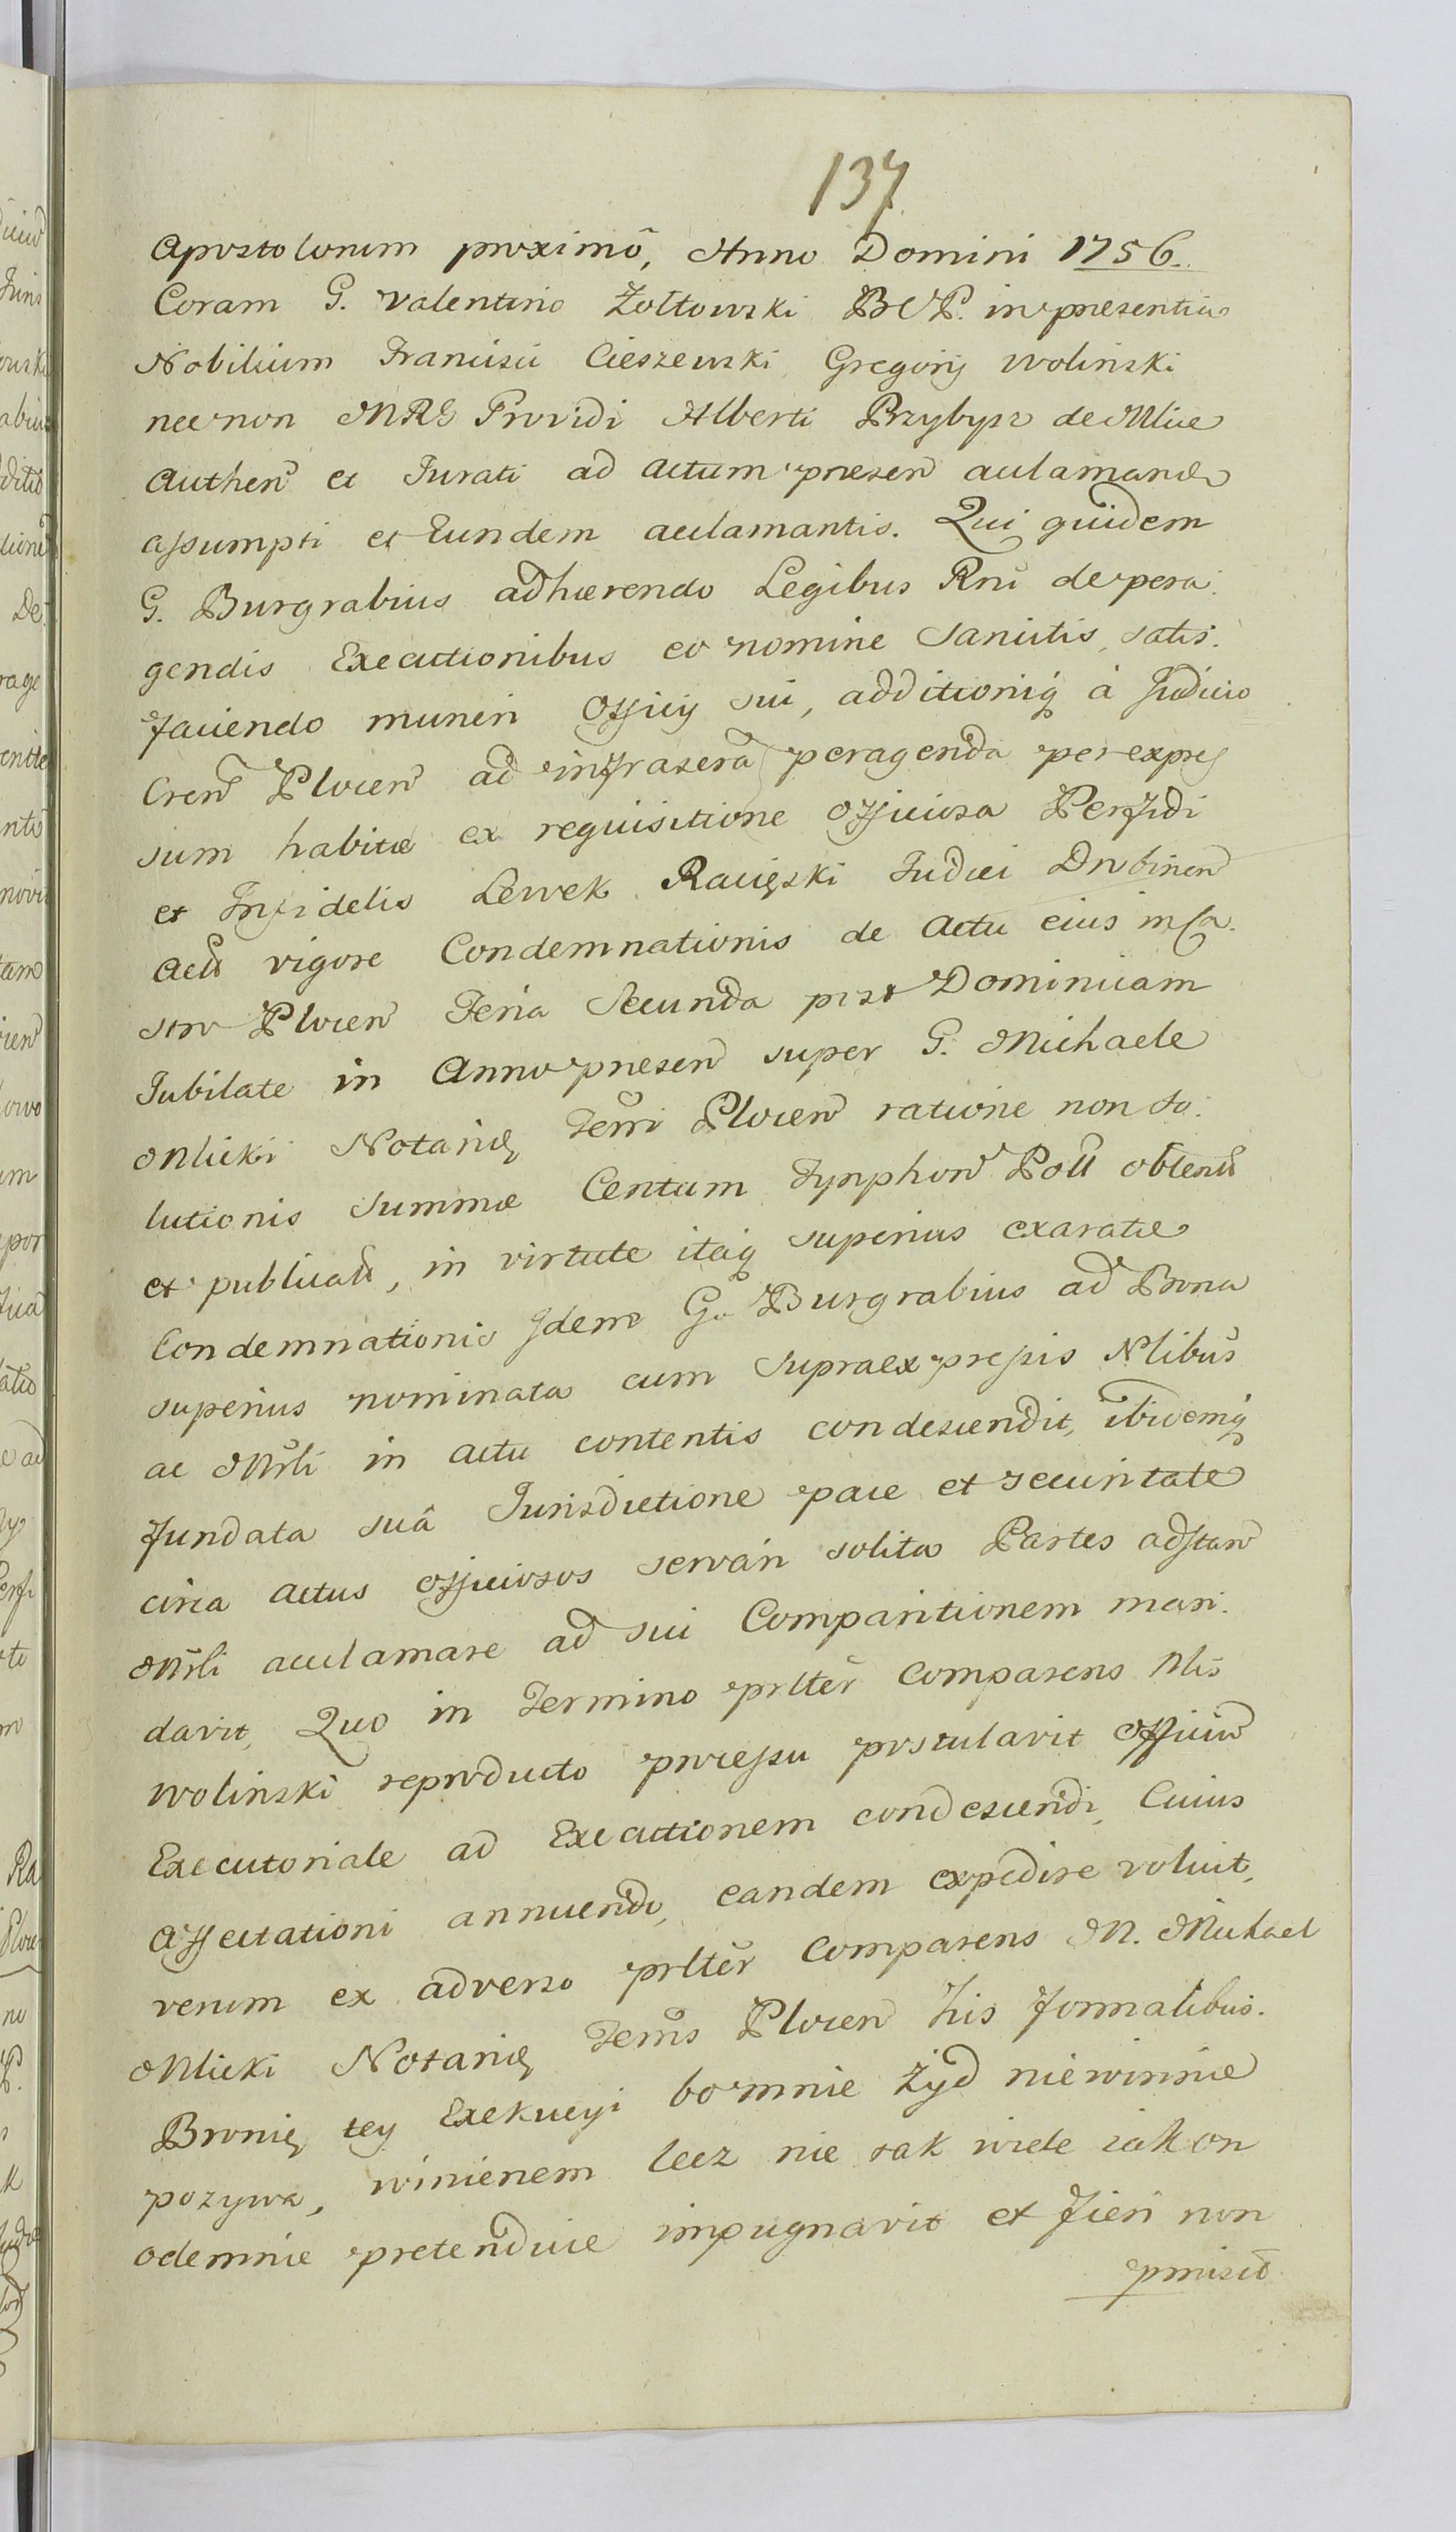 137
Apostolorum proximô, Anno Domini 1756.
Coram G. Valentino Żołtowski BCP. in presentia
Nobilium Francisci Cieszewski Gregorij Wolinski
necnon MRG Providi Alberti Przybysz de Mlice
Authen et Jurati ad actum presen acclamand
assumpti et Eundem acclamantis. Qui quidem
G. Burgrabius adhærendo Legibus Rni de pera.
gendis Executionibus eo nomine Sancitis, satis.
faciendo muneri Officij sui, additioniq̨ à Judicio
Cren Plocen ad infrascra peragenda per expres
sum habitæ ex requisitione officiosa Perfidi
et Infidelis Lewek Racięski Judæi Drobinen
Acts vigore Condemnationis de Actu eius in Ca.
stro Plocen Feria Secunda post Dominicam
Jubilate in Anno presen super G. Michaele
Mlicki Notariq̨ Terri Plocen ratione non so.
lutionis Summæ Centum Tynphon Poll obtents
et publicats, in virtute itaq̨ superius exaratæ
Condemnationis Idem G. Burgrabius ad Bona
superius nominata cum supraexpressis Nlibus
ac Mrli in actu contentis condescendit, ibidemq̨
fundata suâ Jurisdictione pace et securitate
circa actus officiosos servari solita Partes adstan
Mrli acclamare ad sui Comparitionem man.
davit, Quo in Termino prlter Comparens Nlis
Wolinski reproducto processu postulavit officium
Executoriale ad Executionem condescendi, Cuius
affectationi annuendo, eandem expedire voluit,
verum ex adverso prlter Comparens M. Michael
Mlicki Notariq̨ Terris Plocen his formalibus.
Bronię tey Exekucyi bo mnie Żyd niewinnie
pozywa, winienem lecz nie tak wiele iak on
odemnie pretenduie impugnavit et fieri non
pmisit